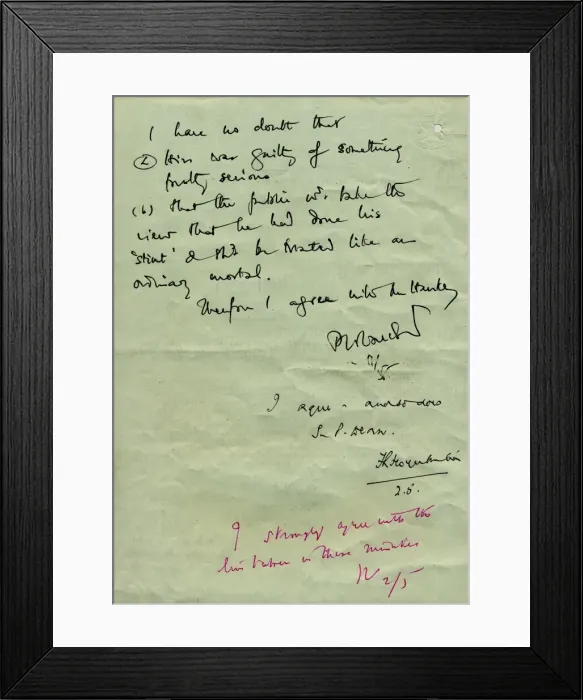 I have no doubt that
(a) Hess was guilty of something
pretty serious
(b) that the public wd. take the
view that he had done his
'stint' & shd. be treated like an
ordinary mortal.
Therefore I agree with Mr Hankey
2/5
I agree - and so does
Sir P. Dean.
2.5.
I strongly agree with the
line taken in these minutes
2/5